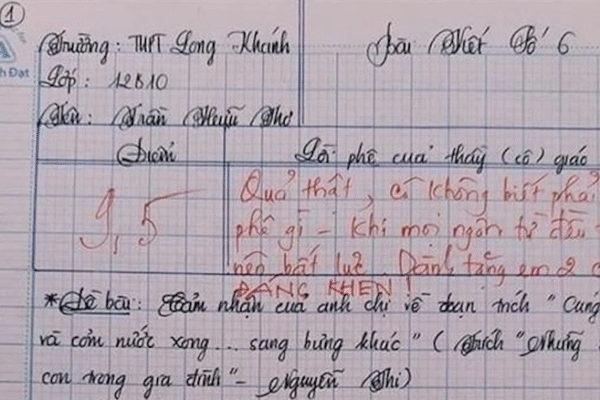 1
h Đạt
Trường: THPT Long Khánh
Bài Viết Số 6
Lớp: 12B10
Tên: Trần Hữu Thơ
Điểm
Lời phê của thầy (cô) giáo
9,5
Quả thật, cô không biết phả
phê gì - khi mọi ngôn từ đều
nên bất lực. Dành tặng em 2 c
ĐÁNG KHEN!
*Đề bài: Cảm nhận của anh chị về đoạn trích "Cúng
và cơm nước xong... sang bưng khác" (Trích "Những
con trong gia đình" - Nguyễn Thi)